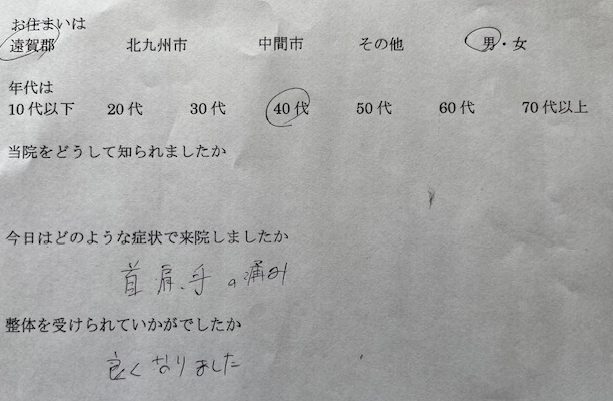 お住まいは
遠賀郡 北九州市 中間市 その他 男・女
年代は
10代以下 20代 30代 40代 50代 60代 70代以上
当院をどうして知られましたか
今日はどのような症状で来院しましたか
首、肩、手の痛み
整体を受けられていかがでしたか
良くなりました